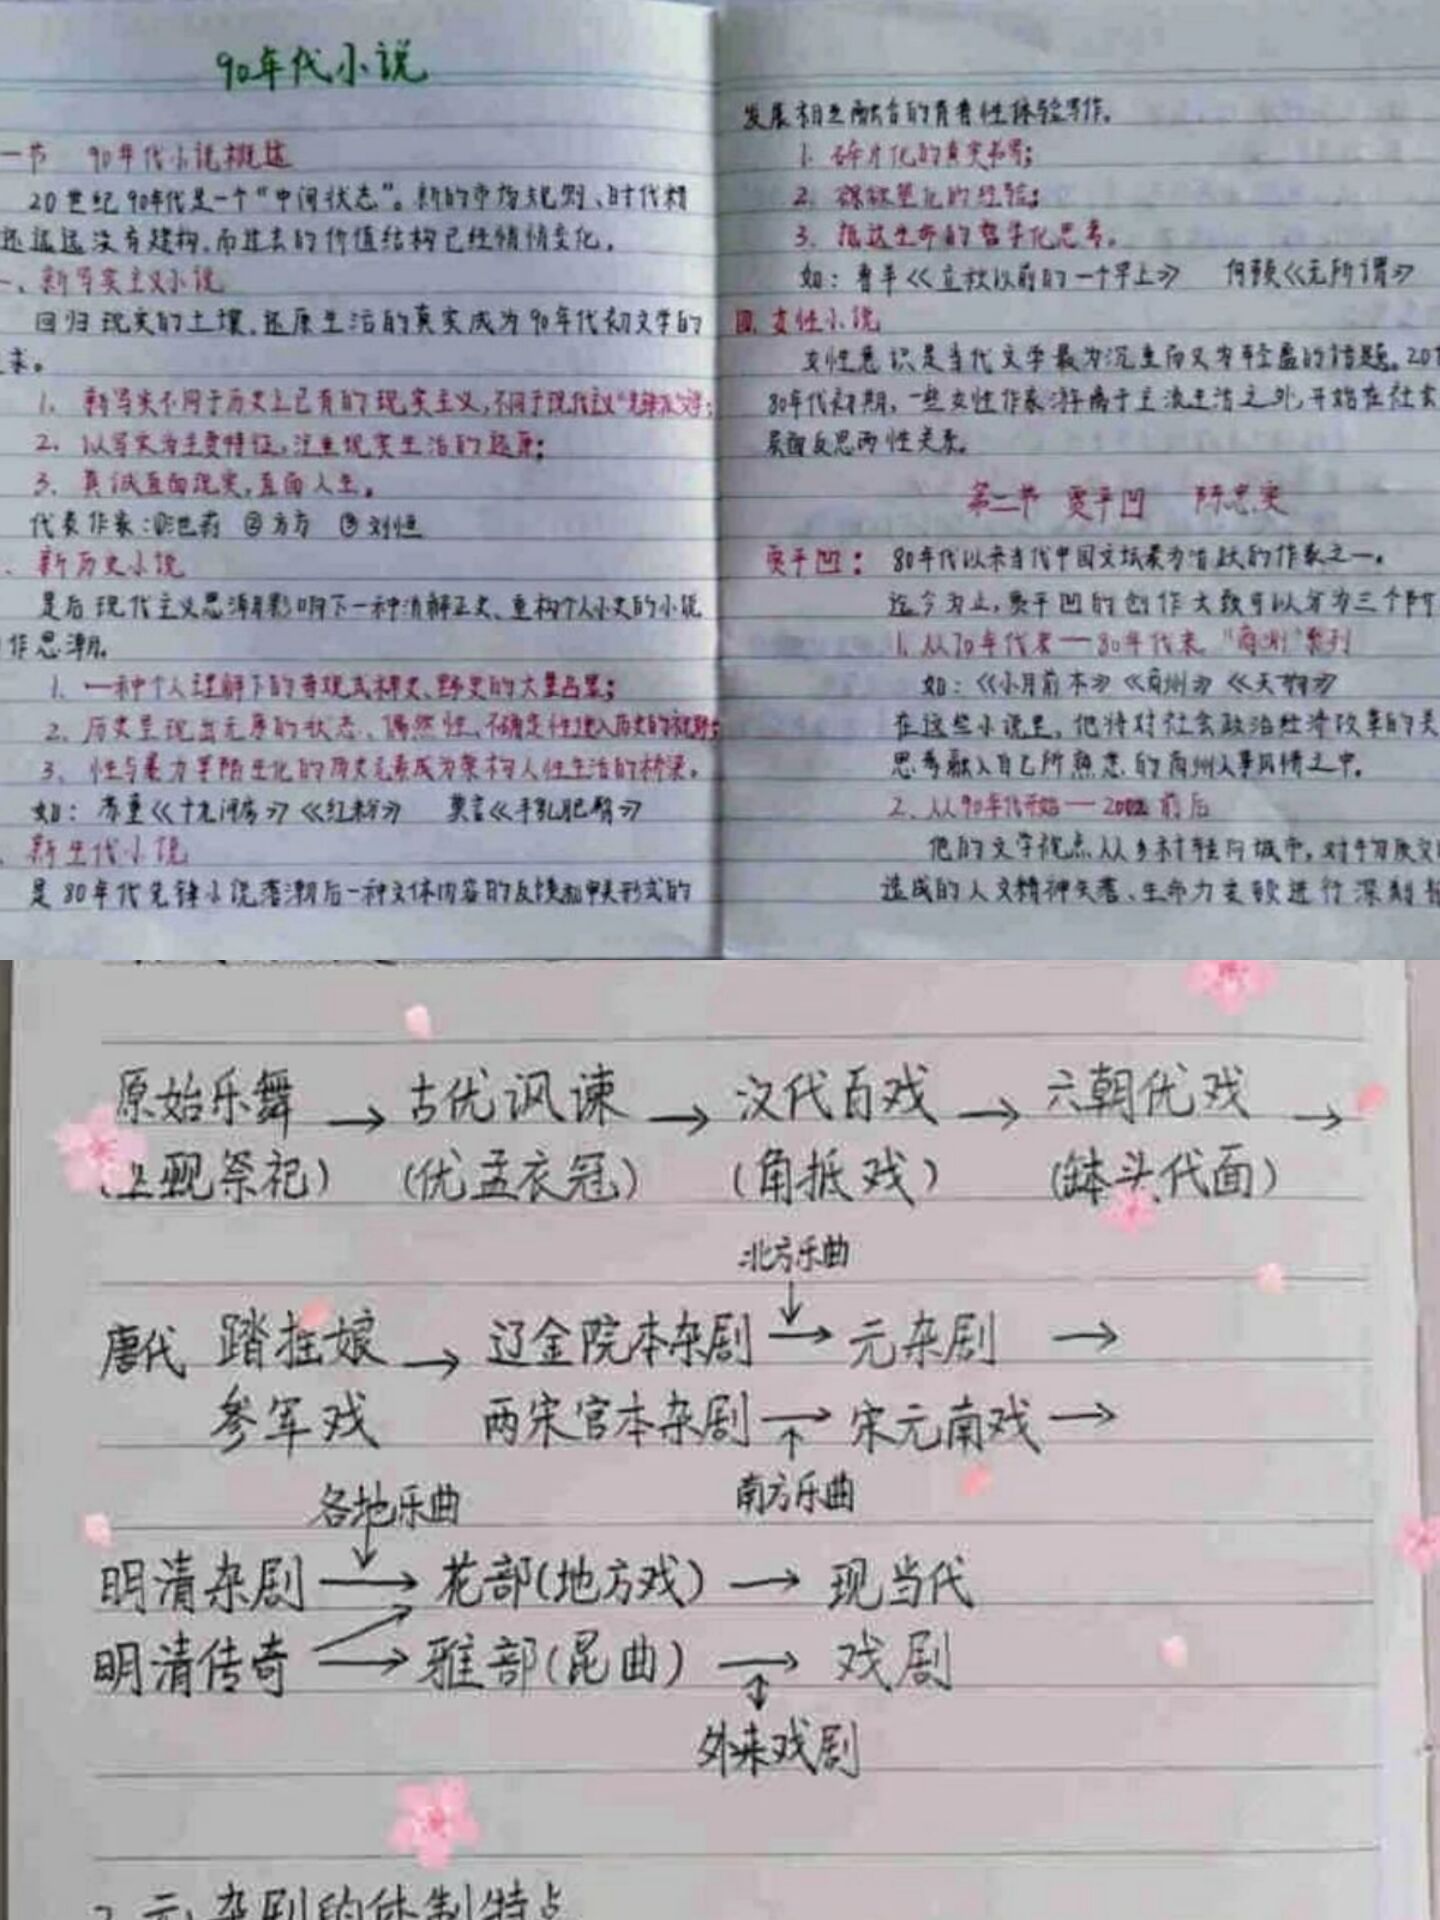 90年代小说
一节 90年代小说概述
20世纪90年代是一个“中间状态”。新的市场规则、时代精
还远远没有建构,而过去的价值结构已经悄悄变化。
一、新写实主义小说
回归现实的土壤,还原生活的真实成为90年代初文学的
求。
1. 新写实不同于历史上已有的现实主义,不同于现代主义“先锋派”文学;
2. 以写实为主要特征,注重现实生活的还原;
3. 真诚直面现实,直面人生。
代表作家:①池莉 ②方方 ③刘恒
、新历史小说
是后现代主义思潮影响下一种消解正史、重构个人小史的小说
作思潮。
1. 一种个人理解下的
野史的大量凸显;
2. 历史呈现出无序的状态、偶然性、不确定性进入历史的视野;
3. 性与暴力等陌生化的历史元素成为架构人性生活的桥梁。
如: 苏童《十九间房》《红粉》 莫言《丰乳肥臀》
、新生代小说
是80年代先锋小说落潮后一种文体内容的反馈和
形式的
发展相互融合的青春性体验写作。
1. 碎片化的真实书写;
2. 裸
化的经验;
3. 抵达生命的哲学化思考。
如: 鲁羊《立秋以前的一个早上》 何顿《无所谓》
四、女性小说
女性意识是当代文学最为沉重而又为轻盈的话题。20
80年代初期,一些女性作家游离于主流生活之外,开始在社会
层面反思两性关系。
第二节 贾平凹 陈忠实
贾平凹: 80年代以来当代中国文坛最为活跃的作家之一。
迄今为止,贾平凹的创作大致可以分为三个阶
1. 从70年代末—80年代末 “商州”系列
如:《小月前本》《商州》《天狗》
在这些小说里,他将对社会政治经济改革的关
思考融入自己所熟悉的商州人事风情之中。
2. 从90年代开始—2002前后
他的文学视点从乡村转向城市,对物质文明
造成的人文精神失落、生命力支
进行深刻
原始乐舞 → 古优讽谏 → 汉代百戏 → 六朝优戏 →
(巫觋祭祀) (优孟衣冠) (角抵戏) (钵头代面)
北方乐曲
唐代 踏摇娘 → 辽金院本杂剧 → 元杂剧 →
参军戏 两宋官本杂剧 → 宋元南戏 →
各地乐曲 南方乐曲
明清杂剧 → 花部(地方戏) → 现当代
明清传奇 → 雅部(昆曲) → 戏剧
外来戏剧
2.元杂剧的体制特点